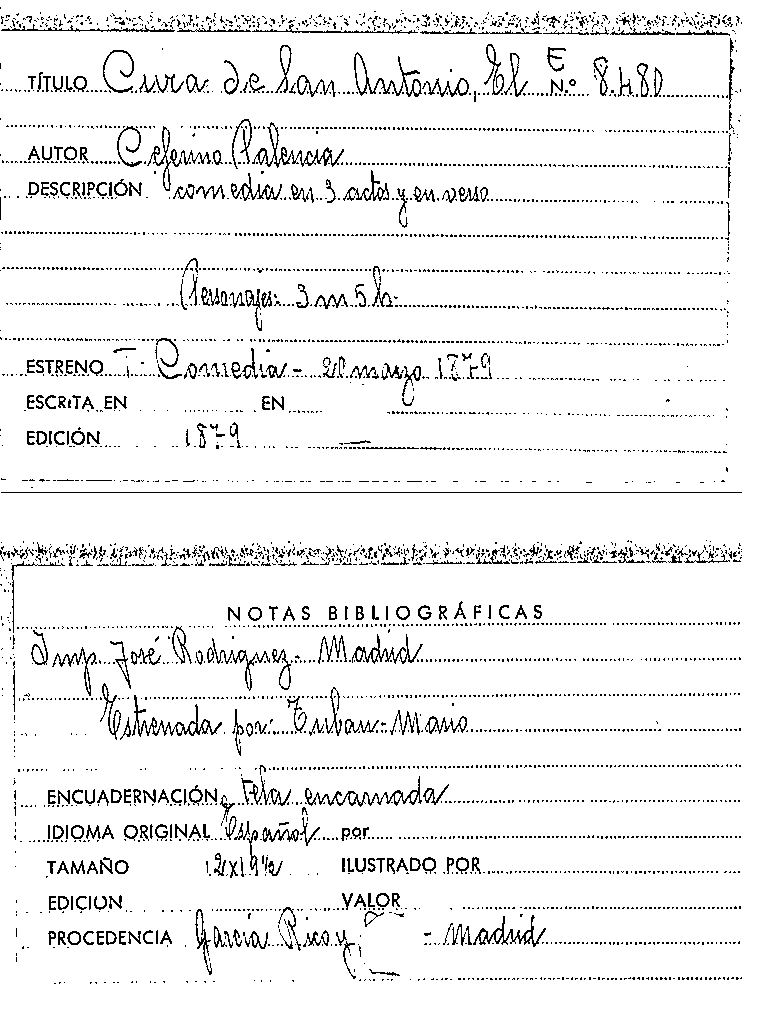 TÍTULO Cura de San Antonio, El E N.º 8.480
AUTOR Ceferino Palencia
DESCRIPCIÓN comedia en 3 actos y en verso
Personajes: 3 m 5 h.
ESTRENO T. Comedia - 20 marzo 1879
ESCRITA EN EN
EDICIÓN 1879
NOTAS BIBLIOGRÁFICAS
Imp. José Rodríguez - Madrid
Estrenada por: Tubau - Mario
ENCUADERNACIÓN tela encarnada
IDIOMA ORIGINAL Español por
TAMAÑO 12x19½ ILUSTRADO POR
EDICION VALOR
PROCEDENCIA García Rico y - Madrid